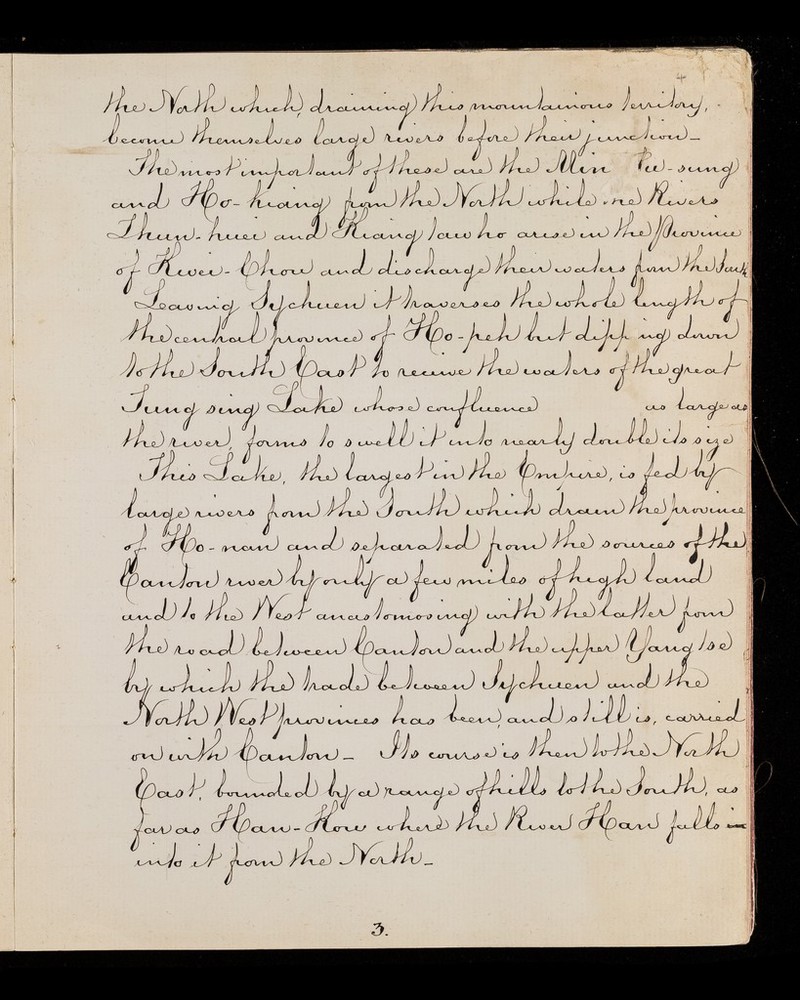 4
the North which, draining this mountainous territory,
become themselves large rivers before their junction –
The most important of these are the Min Fu-sung
and Ho-kiang from the North while the Rivers
and Kiang taw ho arise in the Province
of Kwei-Chow and discharge their waters from the South
Leaving Sychuen it traverses the whole length of
the central province of Ho-peh but dipping down
to the South East to receive the waters of the great
Tung sing Lake whose confluence as large as
the river, forms to swell it into nearly double its size
This Lake, the largest in the Empire, is fed by
large rivers from the South which drain the province
of Ho-nan and separated from the sources of the
Canton river by only a few miles of high land
and to the West anastomosing with the latter form
the road between Canton and the upper Yang tse
by which the trade between Sychuen and the
North West provinces has been, and still is, carried
on with Canton – Its course is then to the North
East, bounded by a range of hills to the South, as
far as Han-Kow where the River Han falls in
into it from the North –
3.